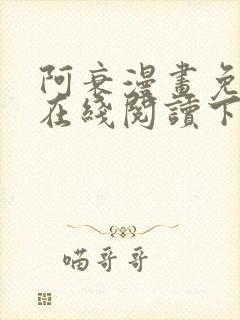 阿衰漫畫免
在綫閱讀下
喵哥哥